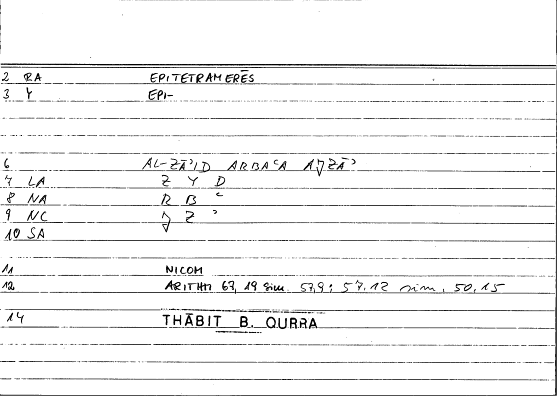 2 RA EPITETRAMERĒS
3 Y EPI-
6 AL-ZĀʾID ARBAʿA AJ̌ZĀʾ
7 LA Z Y D
8 NA R B ʿ
9 NC J̌ Z ʾ
10 SA
11 NICOM
12 ARITHM 67, 19 sim. 57,9; 57.12 sim. 50.15
14 THĀBIT B. QURRA